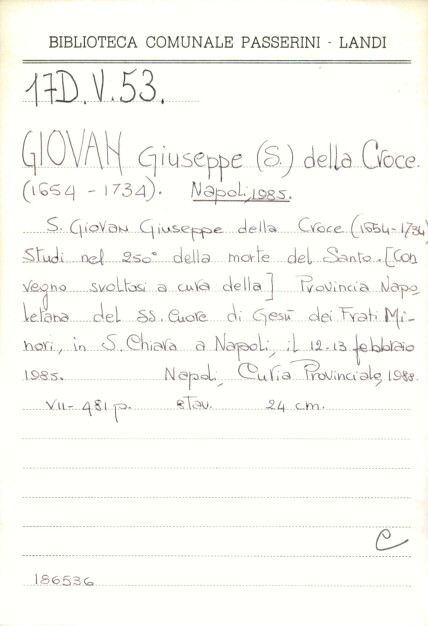 BIBLIOTECA COMUNALE PASSERINI - LANDI
17D.V.53.
GIOVAN Giuseppe (S.) della Croce.
(1654 - 1734). Napoli, 1985.
S. Giovan Giuseppe della Croce (1654-1734)
Studi nel 250° della morte del Santo. [Con
vegno svoltosi a cura della] Provincia Napo
letana del SS. Cuore di Gesù dei Frati Mi-
nori, in S. Chiara a Napoli, il 12-13 febbraio
1985. Napoli, Curia Provinciale, 1988.
VII- 481 p. 8 tav. 24 cm.
C
186536